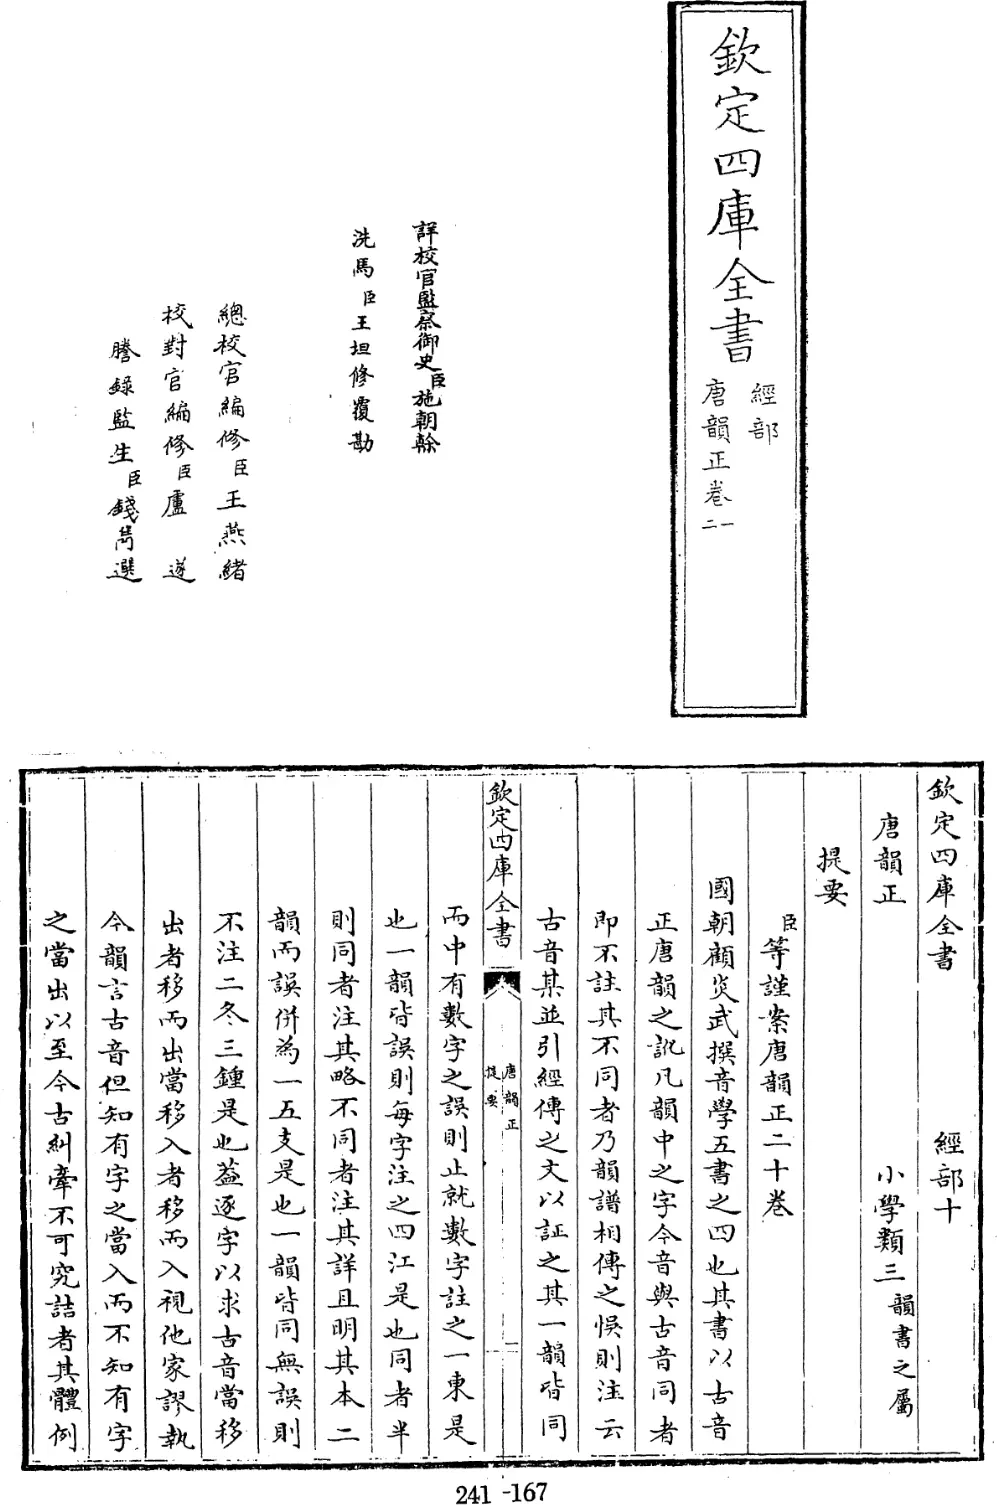 欽定四庫全書
經部
唐韻正卷一
二
詳校官監察御史臣施朝幹
洗馬臣王坦修覆勘
總校官編修臣王燕緒
校對官編修臣盧遂
謄錄監生臣錢選
欽定四庫全書　經部十
唐韻正　小學類三韻書之屬
提要
臣等謹案唐韻正二十卷
國朝顧炎武撰音學五書之四也其書以古音
正唐韻之訛凡韻中之字今音與古音同者
即不註其不同者乃韻譜相傳之悞則注云
古音某並引經傳之文以証之其一韻皆同
欽定四庫全書
唐韻正
提要
一
而中有數字之誤則止就數字註之一東是
也一韻皆誤則每字注之四江是也同者半
則同者注其略不同者注其詳且明其本二
韻而誤併為一五支是也一韻皆同無誤則
不注二冬三鍾是也葢逐字以求古音當移
出者移而出當移入者移而入視他家謬執
今韻言古音但知有字之當入而不知有字
之當出以至今古糾牽不可究詰者其體例
241-167